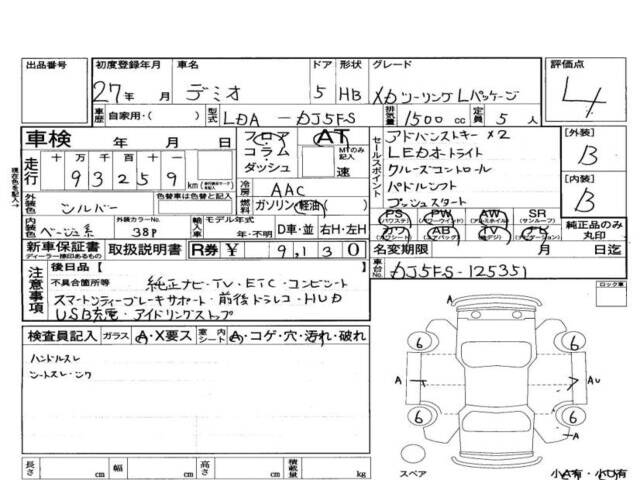 出品番号 初度登録年月 車名 ドア 形状 グレード 評価点
27年 月 デミオ 5 HB XDツーリングLパッケージ 4
車歴 自家用・( ) 型式 LDA-DJ5FS 排気量 1500cc 定員 5人
車検 年 月 日 フロア コラム ダッシュ AT MTのみ記入 速
走行 十万 千 百 十 一
93259 km
セールスポイント
アドバンストキー×2
LEDオートライト
クルーズコントロール
パドルシフト
プッシュスタート
[外装]
B
[内装]
B
外装色 シルバー 色替車は色替前の色 冷房 AAC
燃料 ガソリン・軽油・( )
内装色 ベージュ系 外装カラーNo. 38P 輸入車 モデル年式 年・不明 D車・並 右H・左H
PS (パワステ) PW (パワーウインド) AW (アルミホイル) SR (サンルーフ)
カワ (カワシート) AB (エアバッグ) TV (地デジ) ナビ (ナビゲーション)
純正品のみ丸印
新車保証書 ディーラー捺印あるもの 取扱説明書 R券 ¥ 9,130 名変期限 月 日迄
注意事項 後日品[ ] 車台No. DJ5FS-125351
不具合箇所等 純正ナビ・TV・ETC・コンビシート
スマートシティーブレーキサポート・前後ドラレコ・HUD
USB充電・アイドリングストップ
ロック車
検査員記入 ガラス A・X要ス 室内シート A・コゲ・穴・汚れ・破れ
ハンドルスレ
シートスレ・シワ
6 6
A AU
6 6
A
スペア
小A有・小U有
長さ cm 幅 cm 高さ cm 積載量 kg
現在色を記入→